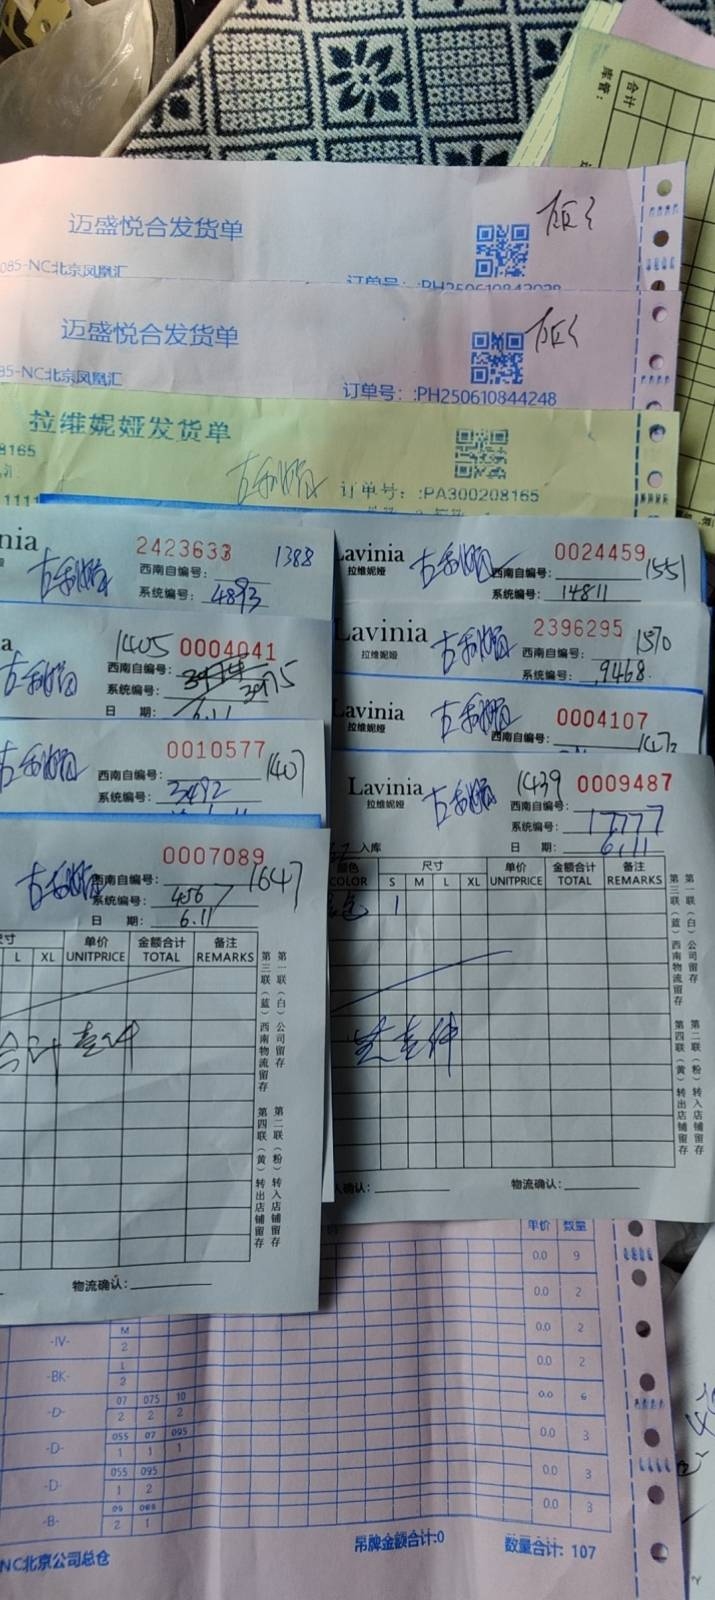 合计
库管:
迈盛悦合发货单
085-NC北京凤凰汇
订单号: :PH250610842028
迈盛悦合发货单
85-NC北京凤凰汇
订单号: :PH250610844248
拉维妮娅发货单
8165
订单号: :PA300208165
1111
nia
2423633
1388
西南自编号:
系统编号: 4893
Lavinia
拉维妮娅
0024459
1551
西南自编号:
系统编号: 14811
a
1405 0004041
西南自编号:
系统编号: 3975
日 期: 6.11
Lavinia
拉维妮娅
2396295
1570
西南自编号:
系统编号: 9468
0010577
1407
西南自编号:
系统编号: 3492
Lavinia
拉维妮娅
0004107
西南自编号:
Lavinia
拉维妮娅
1439 0009487
西南自编号:
系统编号: 17777
日 期: 6.11
入库
颜色 尺寸 单价 金额合计 备注
COLOR S M L XL UNITPRICE TOTAL REMARKS
1
第一联(白)公司留存
第二联(粉)转入店铺留存
第三联(蓝)西南物流留存
第四联(黄)转出店铺留存
人确认:
物流确认:
0007089
1647
西南自编号:
系统编号: 456
日 期: 6.11
尺寸 单价 金额合计 备注
L XL UNITPRICE TOTAL REMARKS
合计壹件
第一联(白)公司留存
第二联(粉)转入店铺留存
第三联(蓝)西南物流留存
第四联(黄)转出店铺留存
物流确认:
单价 数量
0.0 9
0.0 2
-IV- M 0.0 2
2
-BK- L 0.0 2
2
-D- 07 075 10 0.0 6
2 2 2
-D- 055 07 095 0.0 3
1 1 1
-D- 055 095 0.0 3
1 2
-B- 0.0 3
2 1
NC北京公司总仓
吊牌金额合计:0
数量合计: 107